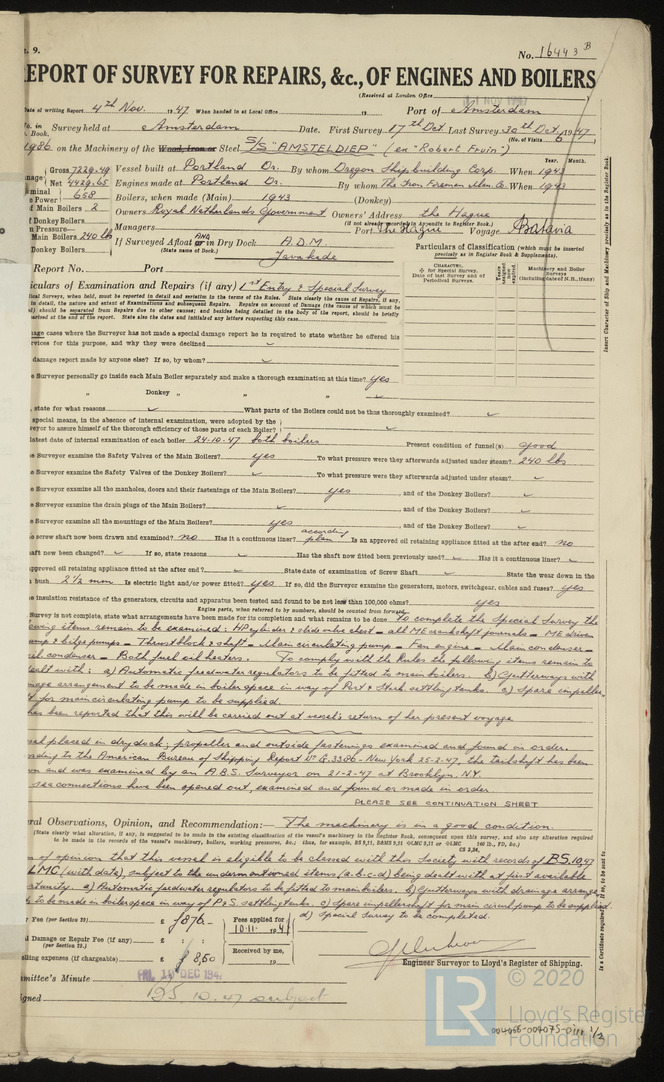 t. 9.
No. 16443 B
REPORT OF SURVEY FOR REPAIRS, &c., OF ENGINES AND BOILERS
(Received at London Office
Date of writing Report 4th Nov. 1947 When handed in at Local Office 19 Port of Amsterdam
No. in Book. Survey held at Amsterdam Date. First Survey 17th Oct. Last Survey 30th Oct 1947
(No. of Visits 6)
1986 on the Machinery of the Wood, Iron or Steel S/S "AMSTELDIEP" (ex "Robert Fruin")
Gross 7229.49 Vessel built at Portland Or. By whom Oregon Shipbuilding Corp. When 1943
Year. Month.
Net 4429.65 Engines made at Portland Or. By whom The Iron Firemen Man. Co. When 1943
Power 658 Boilers, when made (Main) 1943 (Donkey)
of Main Boilers 2 Owners Royal Netherlands Government Owners' Address the Hague
(if not already recorded in Appendix to Register Book.)
of Donkey Boilers Managers Port The Hague Voyage Batavia
Pressure—
Main Boilers 240 lbs If Surveyed Afloat or AND in Dry Dock A.D.M.
(State name of Dock.) Javakade
Donkey Boilers
Particulars of Classification (which must be inserted precisely as in Register Book & Supplements).
Report No. Port
CHARACTER. for Special Survey. Date of last Survey and of Periodical Surveys.
Machinery and Boiler Surveys (including date of N.B., if any)
Insert Character of Ship and Machinery precisely as in the Register Book
iculars of Examination and Repairs (if any) 1st Entry & Special Survey
ical Surveys, when held, must be reported in detail and seriatim in the terms of the Rules. State clearly the cause of Repairs, if any,
in detail, the nature and extent of Examinations and subsequent Repairs. Repairs on account of Damage (the cause of which must be
d) should be separated from Repairs due to other causes; and besides being detailed in the body of the report, should be briefly
arised at the end of the report. State also the dates and initialed any letters respecting this case.
mage cases where the Surveyor has not made a special damage report he is required to state whether he offered his
rvices for this purpose, and why they were declined
damage report made by anyone else? If so, by whom?
e Surveyor personally go inside each Main Boiler separately and make a thorough examination at this time? Yes
" Donkey " " "
, state for what reasons What parts of the Boilers could not be thus thoroughly examined?
special means, in the absence of internal examination, were adopted by the
veyor to assure himself of the thorough efficiency of those parts of each Boiler?
latest date of internal examination of each boiler 24-10-47 both boilers Present condition of funnel(s) good
e Surveyor examine the Safety Valves of the Main Boilers? yes To what pressure were they afterwards adjusted under steam? 240 lbs
e Surveyor examine the Safety Valves of the Donkey Boilers? To what pressure were they afterwards adjusted under steam?
e Surveyor examine all the manholes, doors and their fastenings of the Main Boilers? yes , and of the Donkey Boilers?
e Surveyor examine the drain plugs of the Main Boilers? , and of the Donkey Boilers?
e Surveyor examine all the mountings of the Main Boilers? yes , and of the Donkey Boilers?
e screw shaft now been drawn and examined? no Has it a continuous liner? according plan Is an approved oil retaining appliance fitted at the after end? no
aft now been changed? If so, state reasons Has the shaft now fitted been previously used? Has it a continuous liner?
pproved oil retaining appliance fitted at the after end? State date of examination of Screw Shaft State the wear down in the
bush 2½ mm Is electric light and/or power fitted? yes If so, did the Surveyor examine the generators, motors, switchgear, cables and fuses? yes
e insulation resistance of the generators, circuits and apparatus been tested and found to be not less than 100,000 ohms? yes
Engine parts, when referred to by numbers, should be counted from forward.
Survey is not complete, state what arrangements have been made for its completion and what remains to be done To complete the Special Survey the
owing items remain to be examined: HP cylinder & slide valve chest – all ME crankshaft journals – ME driven
ump & bilge pumps – Thrustblock & shaft – Main circulating pump – Fan engine – Main condenser –
il condenser – Both fuel oil heaters. To comply with the Rules the following items remain to
dealt with; a) Automatic feedwater regulators to be fitted to main boilers. b) Gutterways with
nage arrangement to be made in boilerspace in way of Port & Starb. settling tanks. c) Spare impeller
t for main circulating pump to be supplied.
has been reported that this will be carried out at vessel's return of her present voyage
sel placed in drydock; propeller and outside fastenings examined and found in order.
rding to the American Bureau of Shipping Report No G. 3386 - New York 25-2-47, the tailshaft has been
wn and was examined by an A.B.S. Surveyor on 21-2-47 at Brooklyn. N.Y.
sea connections have been opened out, examined and found or made in order
PLEASE SEE CONTINUATION SHEET
eral Observations, Opinion, and Recommendation:— The machinery is in a good condition.
(State clearly what alteration, if any, is suggested to be made in the existing classification of the vessel's machinery in the Register Book, consequent upon this survey, and also any alteration required
to be made in the records of the vessel's machinery, boilers, working pressures, &c.; thus, for example, BS 9,11, B&MS 9,11 LMC 9,11 or LMC 160 lb., FD, &c.)
CS 2,34,
m of opinion that this vessel is eligible to be classed with this Society with records of BS. 10,47
& LMC (with date), subject to the undermentioned items (a-b-c-d) being dealt with at first available
ortunity. a) Automatic feedwater regulators to be fitted to main boilers. b) Gutterways with drainage arrange
t to be made in boilerspace in way of P & S. settling tanks. c) spare impellershaft for main circul. pump to be supplied.
d) Special Survey to be completed.
y Fee (per Section 29) £ f876.— Fees applied for 10.11.1947
l Damage or Repair Fee (if any) £ : :
(per Section 29.)
elling expenses (if chargeable) £ f 8,50 Received by me, 19
Engineer Surveyor to Lloyd's Register of Shipping.
Is a Certificate required? If so, to be sent to
mittee's Minute FRI. DEC 194
igned 125 10.47 subject
© 2020
LR
Lloyd's Register
Foundation
004066-004075-0111 1/2